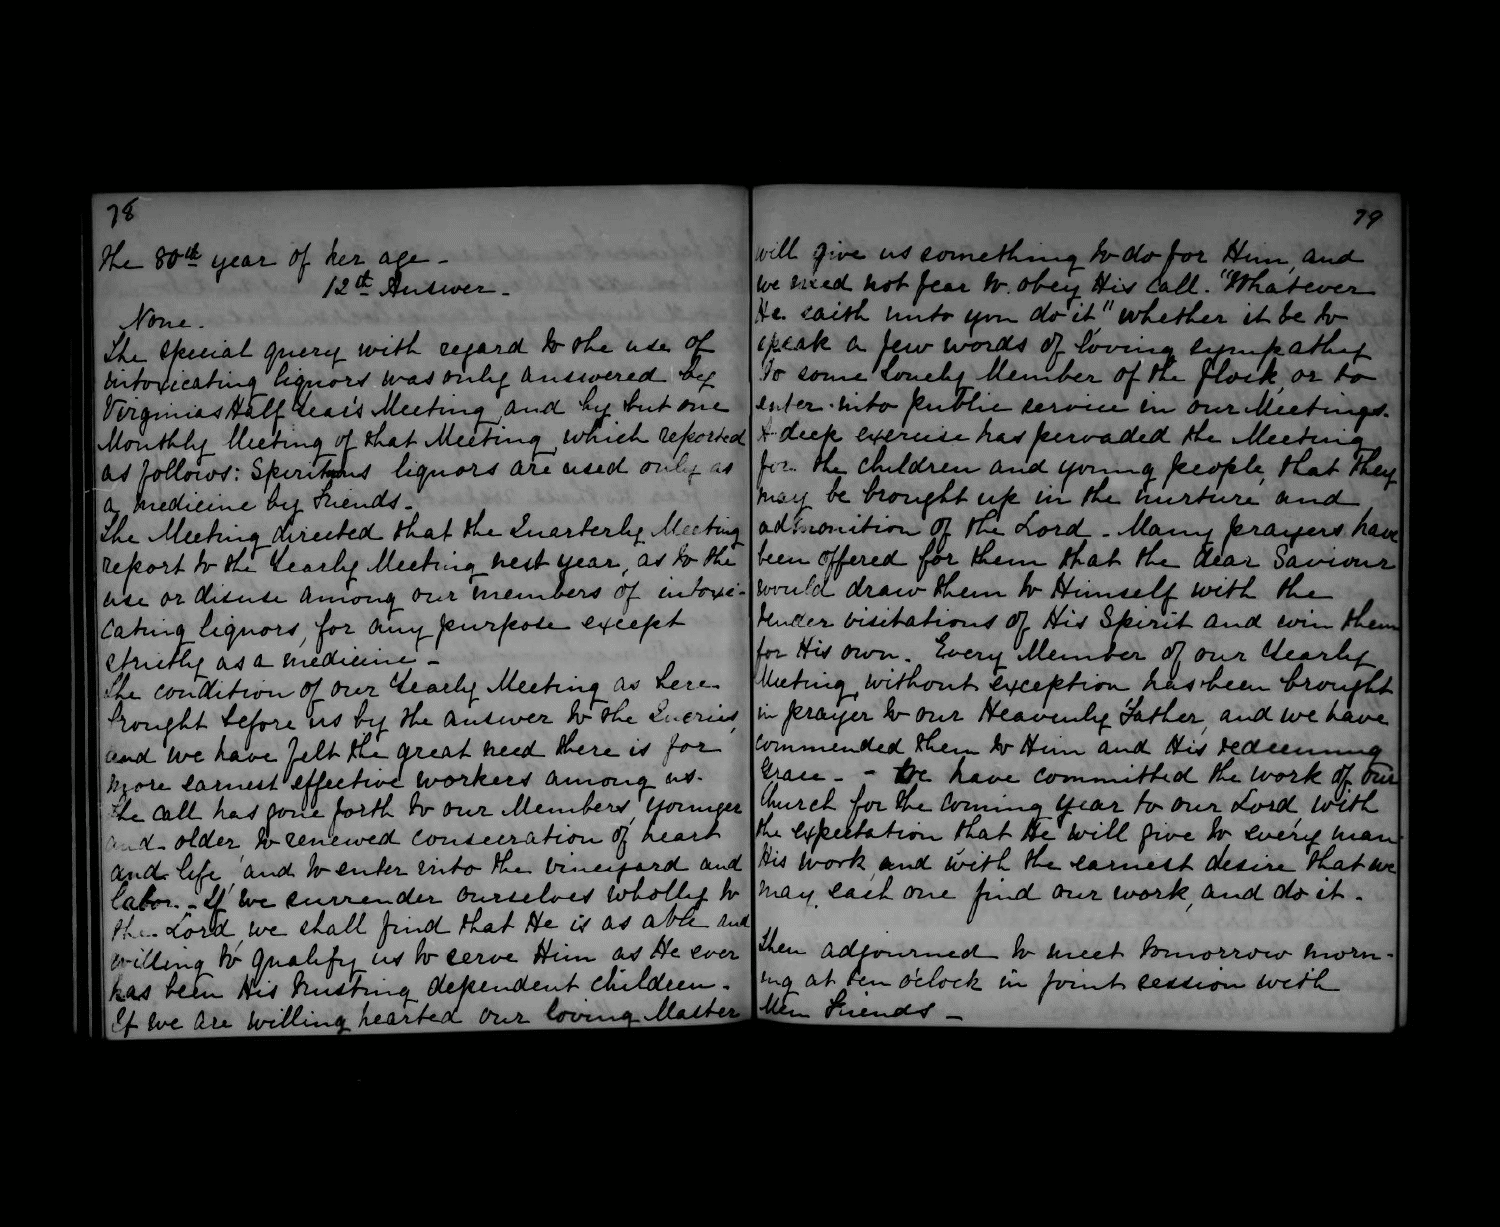 78
the 80th year of her age -
12th Answer -
None.
The special query with regard to the use of
intoxicating liquors was only answered by
Virginias Half Year's Meeting, and by but one
Monthly Meeting of that Meeting, which reported
as follows: Spiritous liquors are used only as
a medicine by Friends -
The Meeting directed that the Quarterly Meeting
report to the Yearly Meeting next year, as to the
use or disuse among our members of intoxi-
cating liquors, for any purpose except
strictly as a medicine -
The condition of our Yearly Meeting as here
brought before us by the answer to the Queries,
and we have felt the great need there is for
more earnest effective workers among us.
The call has gone forth to our Members, younger
and older, to renewed consecration of heart
and life, and to enter into the vineyard and
labor. - If we surrender ourselves wholly to
the Lord, we shall find that He is as able and
willing to qualify us to serve Him as He ever
has been His trusting dependent children -
If we are willing hearted our loving Master
79
will give us something to do for Him, and
we need not fear to obey His call. "Whatever
He saith unto you do it" whether it be to
speak a few words of loving sympathy
to some lonely Member of the flock, or to
enter into public service in our Meetings.
A deep exercise has pervaded the Meeting
for the children and young people, that they
may be brought up in the nurture and
admonition of the Lord - Many prayers have
been offered for them that the dear Saviour
would draw them to Himself with the
tender visitations of His Spirit and win them
for His own. Every Member of our Yearly
Meeting, without exception has been brought
in prayer to our Heavenly Father, and we have
commended them to Him and His redeeming
Grace - - We have committed the work of our
Church for the coming year to our Lord, with
the expectation that He will give to every man
his work, and with the earnest desire that we
may each one find our work, and do it -
Then adjourned to meet tomorrow morn-
ing at ten o'clock in joint session with
Men Friends -